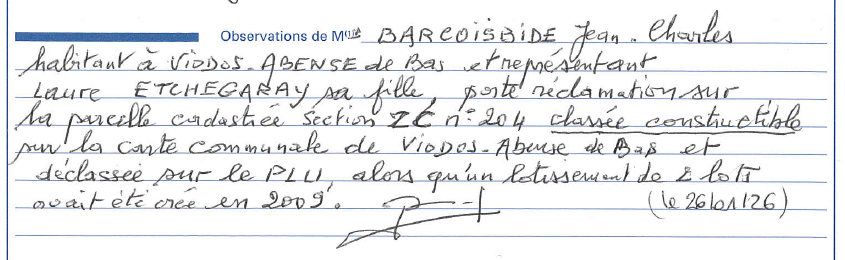 Observations de M BARCOISBIDE Jean-Charles
habitant à VIODOS-ABENSE de Bas et représentant
Laure ETCHEGARAY sa fille, porte réclamation sur
la parcelle cadastrée section ZC n° 204 classée constructible
sur la carte communale de Viodos-Abense de Bas et
déclassée sur le PLU, alors qu'un lotissement de 2 lots
avait été crée en 2009.
(le 26/01/26)